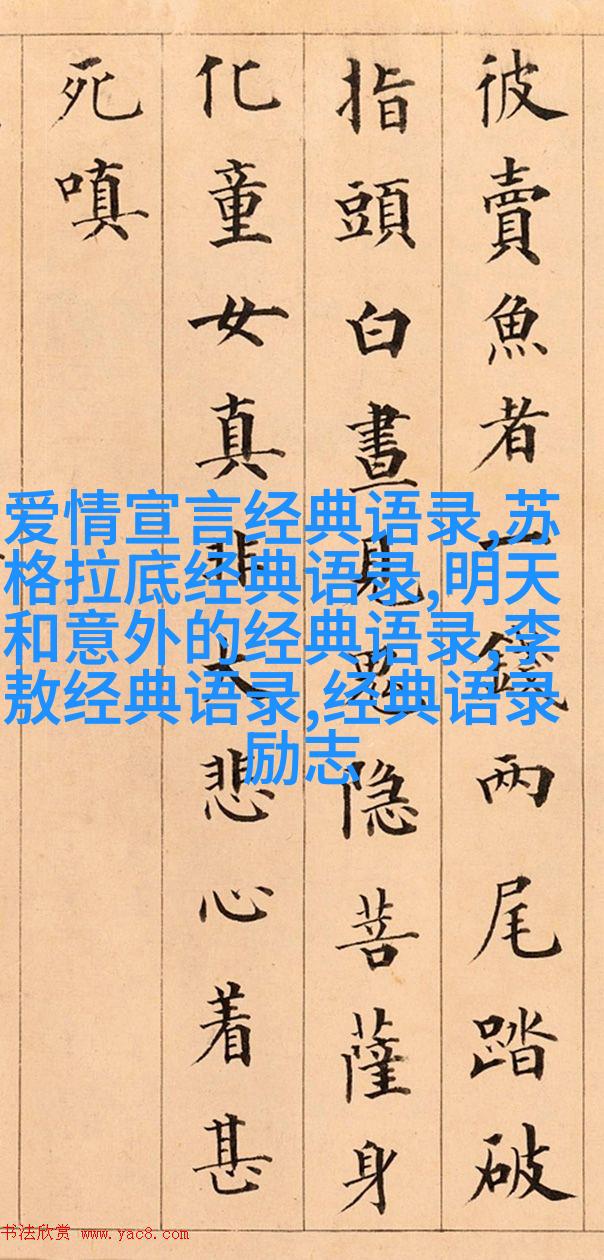 彼賣魚者一錢兩尾踏破
指頭白晝見隐菩薩身
化童女真非大悲心着甚
死嗔
爱情宣言经典语录,苏
格拉底经典语录,明天
和意外的经典语录,李
敖经典语录,经典语录
励志
书法欣赏 www.yac8.com